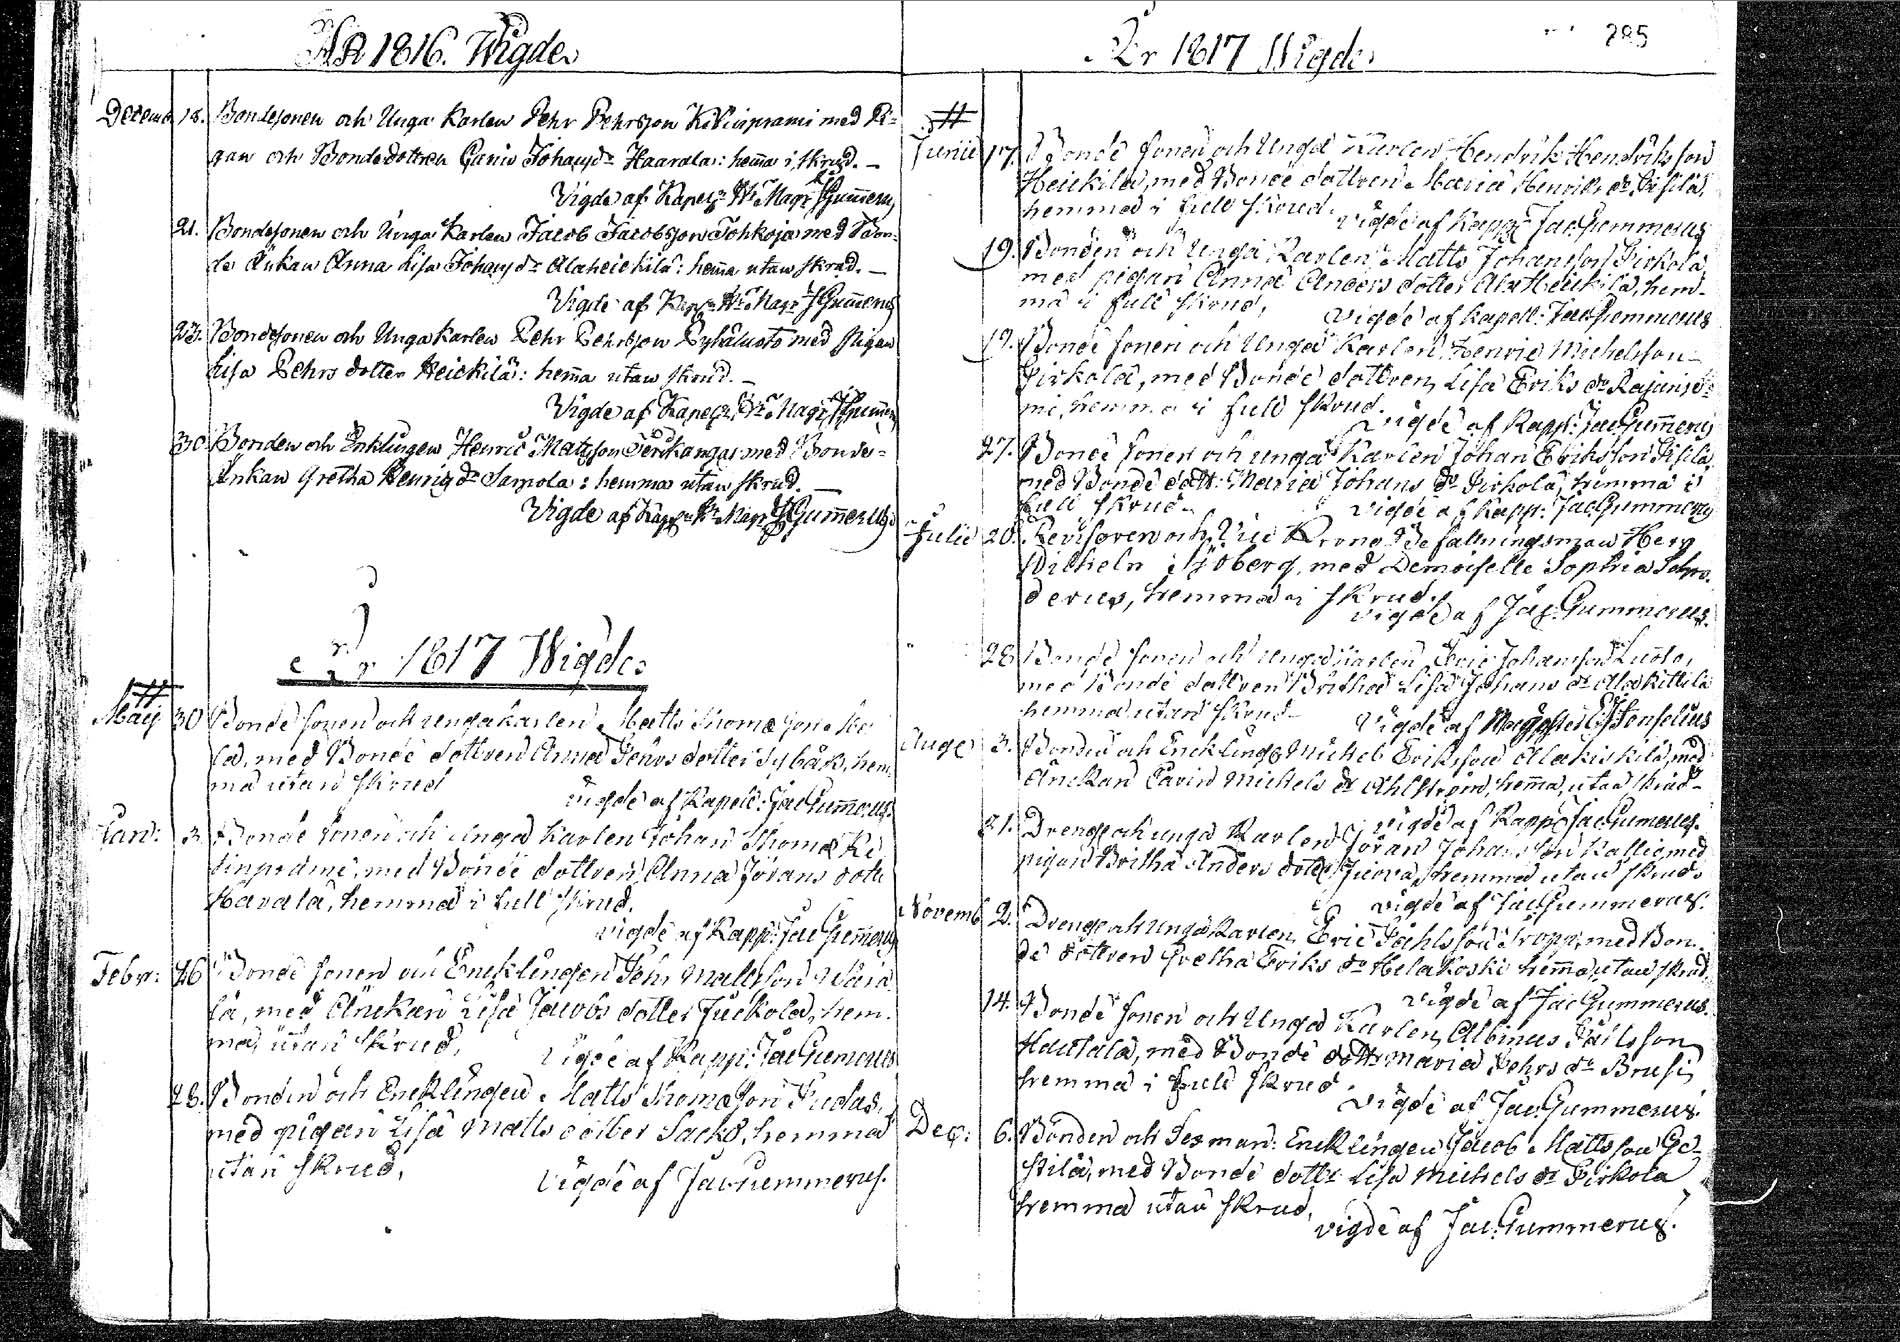 ÅR 1816. Wigde
Decemb. 18. Bondesonen och Unga Karlen Pehr Pehrsson Kiviniprami med Pi=
gan och Bondedottren Carin Johansdr Haarala: hemma i skrud. —
Vigde af Kapeln Hr Magr J Gummerus
21. Bondesonen och Unga Karlen Jacob Jacobsson Tohkoja med Bon=
de Änkan Anna Lisa Johansdr Alaheickilä: hemma utan skrud. —
Vigde af Kapeln Hr Magr J Gummerus
23. Bondesonen och Unga Karlen Pehr Pehrsson Pyhäluoto med Pigan
Lisa Pehrs dotter Heickilä: hemma utan skrud. —
Vigde af Kapeln Hr Magr J Gummerus
30. Bonden och Enklingen Henric Matsson med Bonde=
Enkan Gretha Henrigsdr Samola: hemma utan skrud. —
Vigde af Kapp Hr Magr J Gummerus
År 1817 Wigde
Maij 30 Bonde sonen och unga karlen Matts Thomæ son
med Bonde dottren Anna Pehrs dotter Sybäck, hem
ma utan skrud
vigde af Kapell: Jac Gummerus.
3 Bonde sonen och unga Karlen Johan Thomæ Ki
med Bonde dottren Anna Jörans dott
Havala, hemma i full skrud.
vigde af Kapp: Jac Gummerus
Febr: 26 Bonde sonen och Encklingen Pehr Mattsson
la, med Änckan Lisa Jacobs dotter Juckola, hem=
ma utan skrud,
vigde af Kapp: Jac Gummerus
28. Bonden och Encklingen Matts Thomæ son
med pigan Lisa Matts dotter Backo, hemma
utan skrud,
vigde af Jac Gummerus.
År 1817 Wigde
285
Junii 17. Bonde sonen och Unga Karlen Hendrik Hendriksson
Heickilä, med Bonde dottren Maria Henriks dr Sifilä,
hemma i full skrud.
vigde af Kapp: Jac Gummerus
19. Bonden och Unga Karlen Matts Johansson Pirkola,
med pigan Anna Anders dotter Ala Heickilä, hem-
ma i full skrud,
vigde af Kapell: Jac Gummerus
19. Bonde sonen och Unga Karlen Henric Michelsson
Pirkola, med Bonde dottren Lisa Eriks dr
mi, hemma i full skrud.
vigde af Kapp: Jac Gummerus
27. Bonde sonen och unga Karlen Johan Eriksson Sifilä,
med Bonde dott: Maria Johans dr Pirkola, hemma i
full skrud.
vigde af Kapp: Jac Gummerus
Julii 20. Revisoren och Vice Krono Befallningsman Herr
Wilhelm Sjöberg, med Demoiselle Sophia
derus, hemma i skrud.
vigde af Jac. Gummerus.
28. Bonde sonen och unga Karlen Eric Johansson Luoto,
med Bonde dottren Britha Lisa Johans dr Alakittilä
hemma utan skrud —
Vigde af Magister
Auge 3. Bonden och Enckling Michel Eriksson Alakiskilä, med
Änckan Carin Michels dr Ahlström, hemma, utan skrud —
vigde af Kapp: Jac Gummerus.
21. Drenge och unga Karlen Jöran Johansson Kallio, med
pigan Britha Anders dotter Jucora, hemma utan skrud.
vigde af Jac Gummerus.
Novemb 2. Drenge och unga Karlen Eric Påhlsson Tropp, med Bon=
de dottren Gretha Eriks dr Helakoski hemma, utan skrud,
vigde af Jac Gummerus.
14. Bonde sonen och Unga Karlen Albinus Pålsson
Hautala, med Bonde dottr Maria Pehrs dr Brusi,
hemma i full skrud.
vigde af Jac. Gummerus.
Dec: 6. Bonden och Sexman: Encklingen Jacob Mattsson
stilä, med Bonde dottr Lisa Michels dr Pirkola
hemma utan skrud,
vigde af Jac. Gummerus.